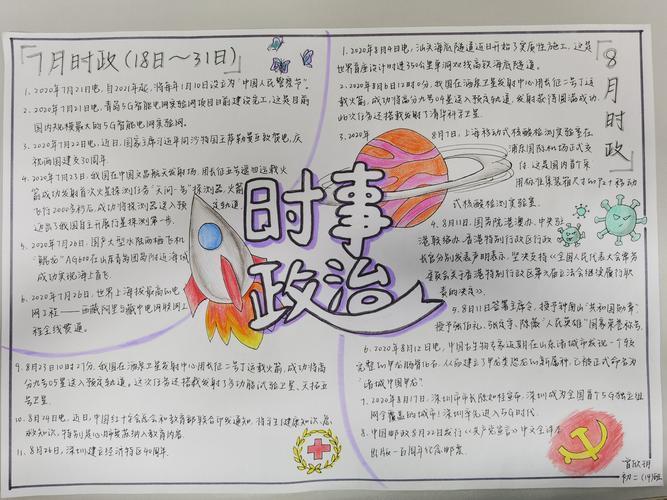 「7月时政(18日～31日)」
1. 2020年7月21日电，自2021年起，将每年1月10日设立为"中国人民警察节"。
2. 2020年7月21日电，青岛5G智能电网实验网项目目前建设完工，这是目前
国内规模最大的5G智能电网实验网。
3. 2020年7月22日电，近日，国家主席习近平同沙特国王萨勒曼互致贺电，庆
祝两国建交30周年
4. 2020年7月23日，我国在中国文昌航天发射场，用长征五号遥四运载火
箭成功发射首次火星探测任务"天问一号"探测器，火箭
飞行2000多秒后，成功将探测器送入预
迈出了我国自主开展行星探测第一步。
5. 2020年7月26日，国产大型水陆两栖飞机
"鲲龙"AG600在山东青岛团岛附近海域
成功实现海上首飞
6. 2020年7月26日，世界上海拔最高的电
网工程——西藏阿里与藏中电网联网工
程全线贯通。
时事
政治
「8月时政」
1. 2020年8月4日电，汕头海底隧道近日开始了实质性施工，这是
世界首座设计时速350公里单洞双线高铁海底隧道。
2. 2020年8月6日12时0分，我国在酒泉卫星发射中心用长征二号丁运
载火箭，成功将高分九号04星送入预定轨道，发射获得圆满成功，
此次任务还搭载发射了清华科学卫星
3. 2020年8月7日，上海移动式核酸检测实验室在
浦东国际机场正式交
付，这是国内首个采
用标准集装箱尺寸的P2+移动
式核酸检测实验室。
4. 8月11日，国务院港澳办、中央驻
港联络办、香港特别行政区行政
长官分别发表声明表示，坚决支持《全国人民代表大会常务
委员会关于香港特别行政区第六届立法会继续履行职
责的决定》
5. 8月11日签署主席令，授予钟南山"共和国勋章"，
授予张伯礼、张定宇、陈薇"人民英雄"国家荣誉称号
6. 2020年8月12日电，中国古生物专家近日在山东诸城市发现一个较
7. 2020年8月17日，深圳市市长陈如桂宣布，深圳成为全国首个5G独立组
网全覆盖的城市；深圳率先进入5G时代。
8. 中国邮政8月22日发行《共产党宣言》中文全译本
出版一百周年纪念邮票
9. 8月23日10时27分，我国在酒泉卫星发射中心用长征二号丁运载火箭，成功将高
分九号05星送入预定轨道，这次任务还搭载发射了多功能试验卫星、天拓五
号卫星
10. 8月24日电，近日，中国红十字会总会和教育部联合印发通知，将学生健康知识、急
救知识，特别是心肺复苏纳入教育内容
11. 8月26日，深圳建立经济特区40周年
初二(19)班